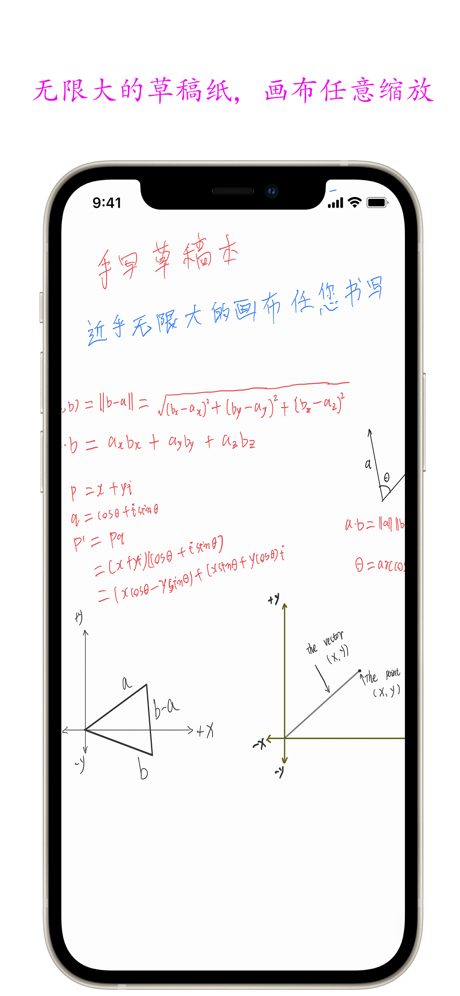 无限大的草稿纸，画布任意缩放
9:41
手写草稿本
近乎无限大的画布任您书写
,b) = ||b-a|| = √(bx-ax)²+(by-ay)²+(bz-az)²
·b = axbx + ayby + azbz
p = x+yi
q = cosθ+isinθ
p' = pq
= (x+yi)(cosθ+isinθ)
= (xcosθ-ysinθ)+(xsinθ+ycosθ)i
a
θ
a·b = ||a|| ||b
θ = arccos
+y
a
b-a
+x
-y
b
+y
the vector
(x,y)
The point
(x,y)
-x
-y